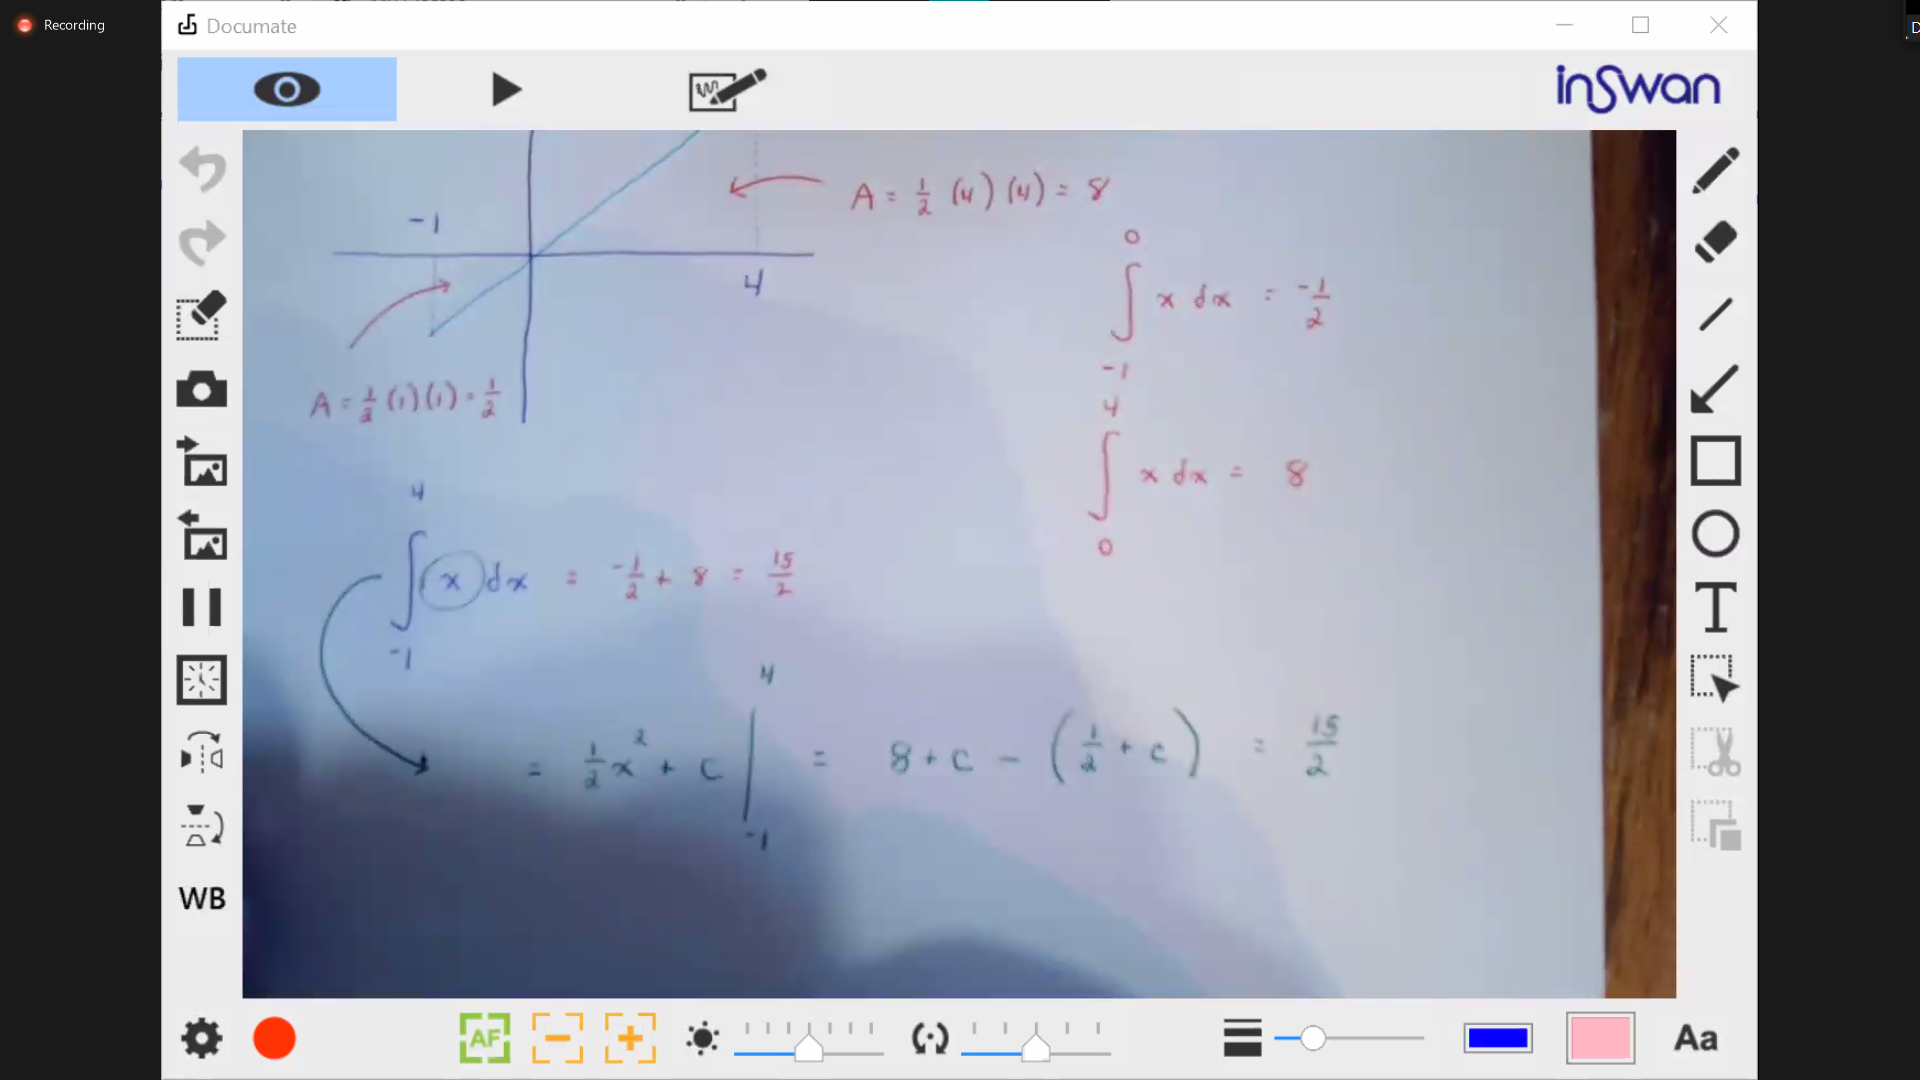 Recording
Documate
inSwan
A = 1/2 (4)(4) = 8
-1
4
A = 1/2 (1)(1) = 1/2
∫_{-1}^{0} x dx = -1/2
∫_{0}^{4} x dx = 8
∫_{-1}^{4} x dx = -1/2 + 8 = 15/2
= 1/2 x² + c |_{-1}^{4} = 8 + c - (1/2 + c) = 15/2
WB
AF
T
Aa
D